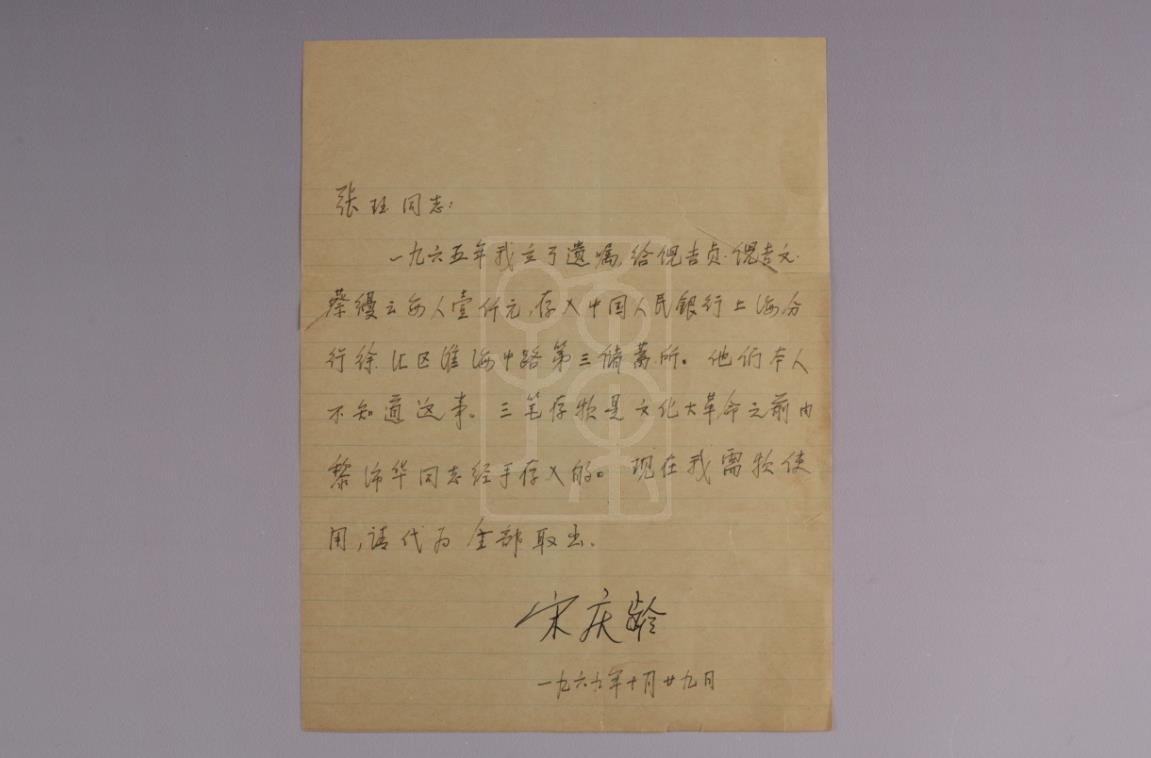 张珏同志:
一九六五年我立了遗嘱,给倪吉贞.倪吉文.
蔡缦云每人壹仟元,存入中国人民银行上海分
行徐汇区淮海中路第三储蓄所。他们本人
不知道这事。三笔存款是文化大革命之前由
黎沛华同志经手存入的。现在我需款使
用,请代为全部取出.
宋庆龄
一九六九年十月廿九日